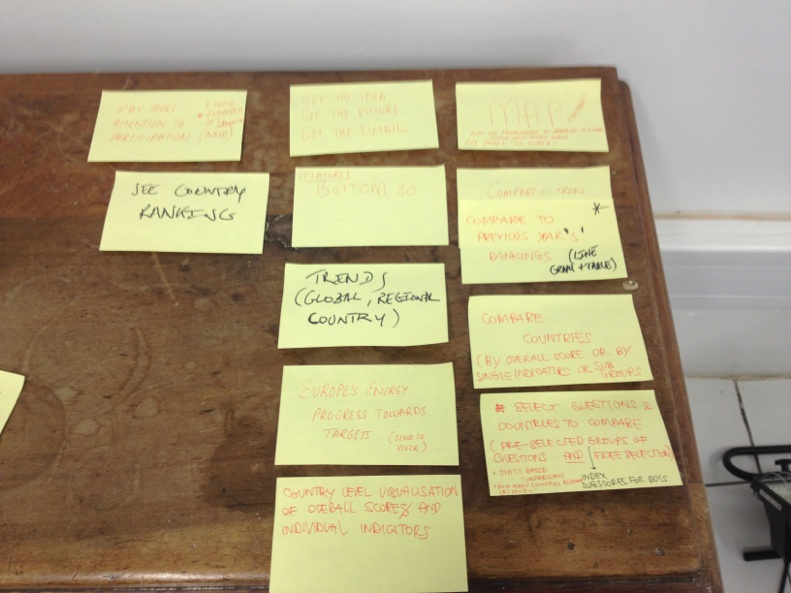 PAY MORE
ATTENTION TO
PARTICIPATION (NEW)
SEE COUNTRY
RANKING
GET THE IDEA
GET THE PICTURE
GET THE DETAIL
FEATURES
BOTTOM 30
TRENDS
(GLOBAL, REGIONAL
COUNTRY)
EUROPE'S ENERGY
PROGRESS TOWARDS
TARGETS (SEND TO
COUNTRY LEVEL VISUALISATION
OF OVERALL SCORES/AND
INDIVIDUAL INDICATORS
MAP
COMPARE-O-TRON
COMPARE TO *
PREVIOUS YEAR'S'
RANKINGS (LINE
GRAPH + TABLE)
COMPARE
COUNTRIES
(BY OVERALL SCORE OR BY
SINGLE INDICATORS OR SUB
GROUPS
* SELECT QUESTIONS &
COUNTRIES TO COMPARE
(PRE-SELECTED GROUPS OF
QUESTIONS AND FREE SELECTION)
* STATS BASED
COMPARISONS
INDEX
SUBSCORES FOR DOCS